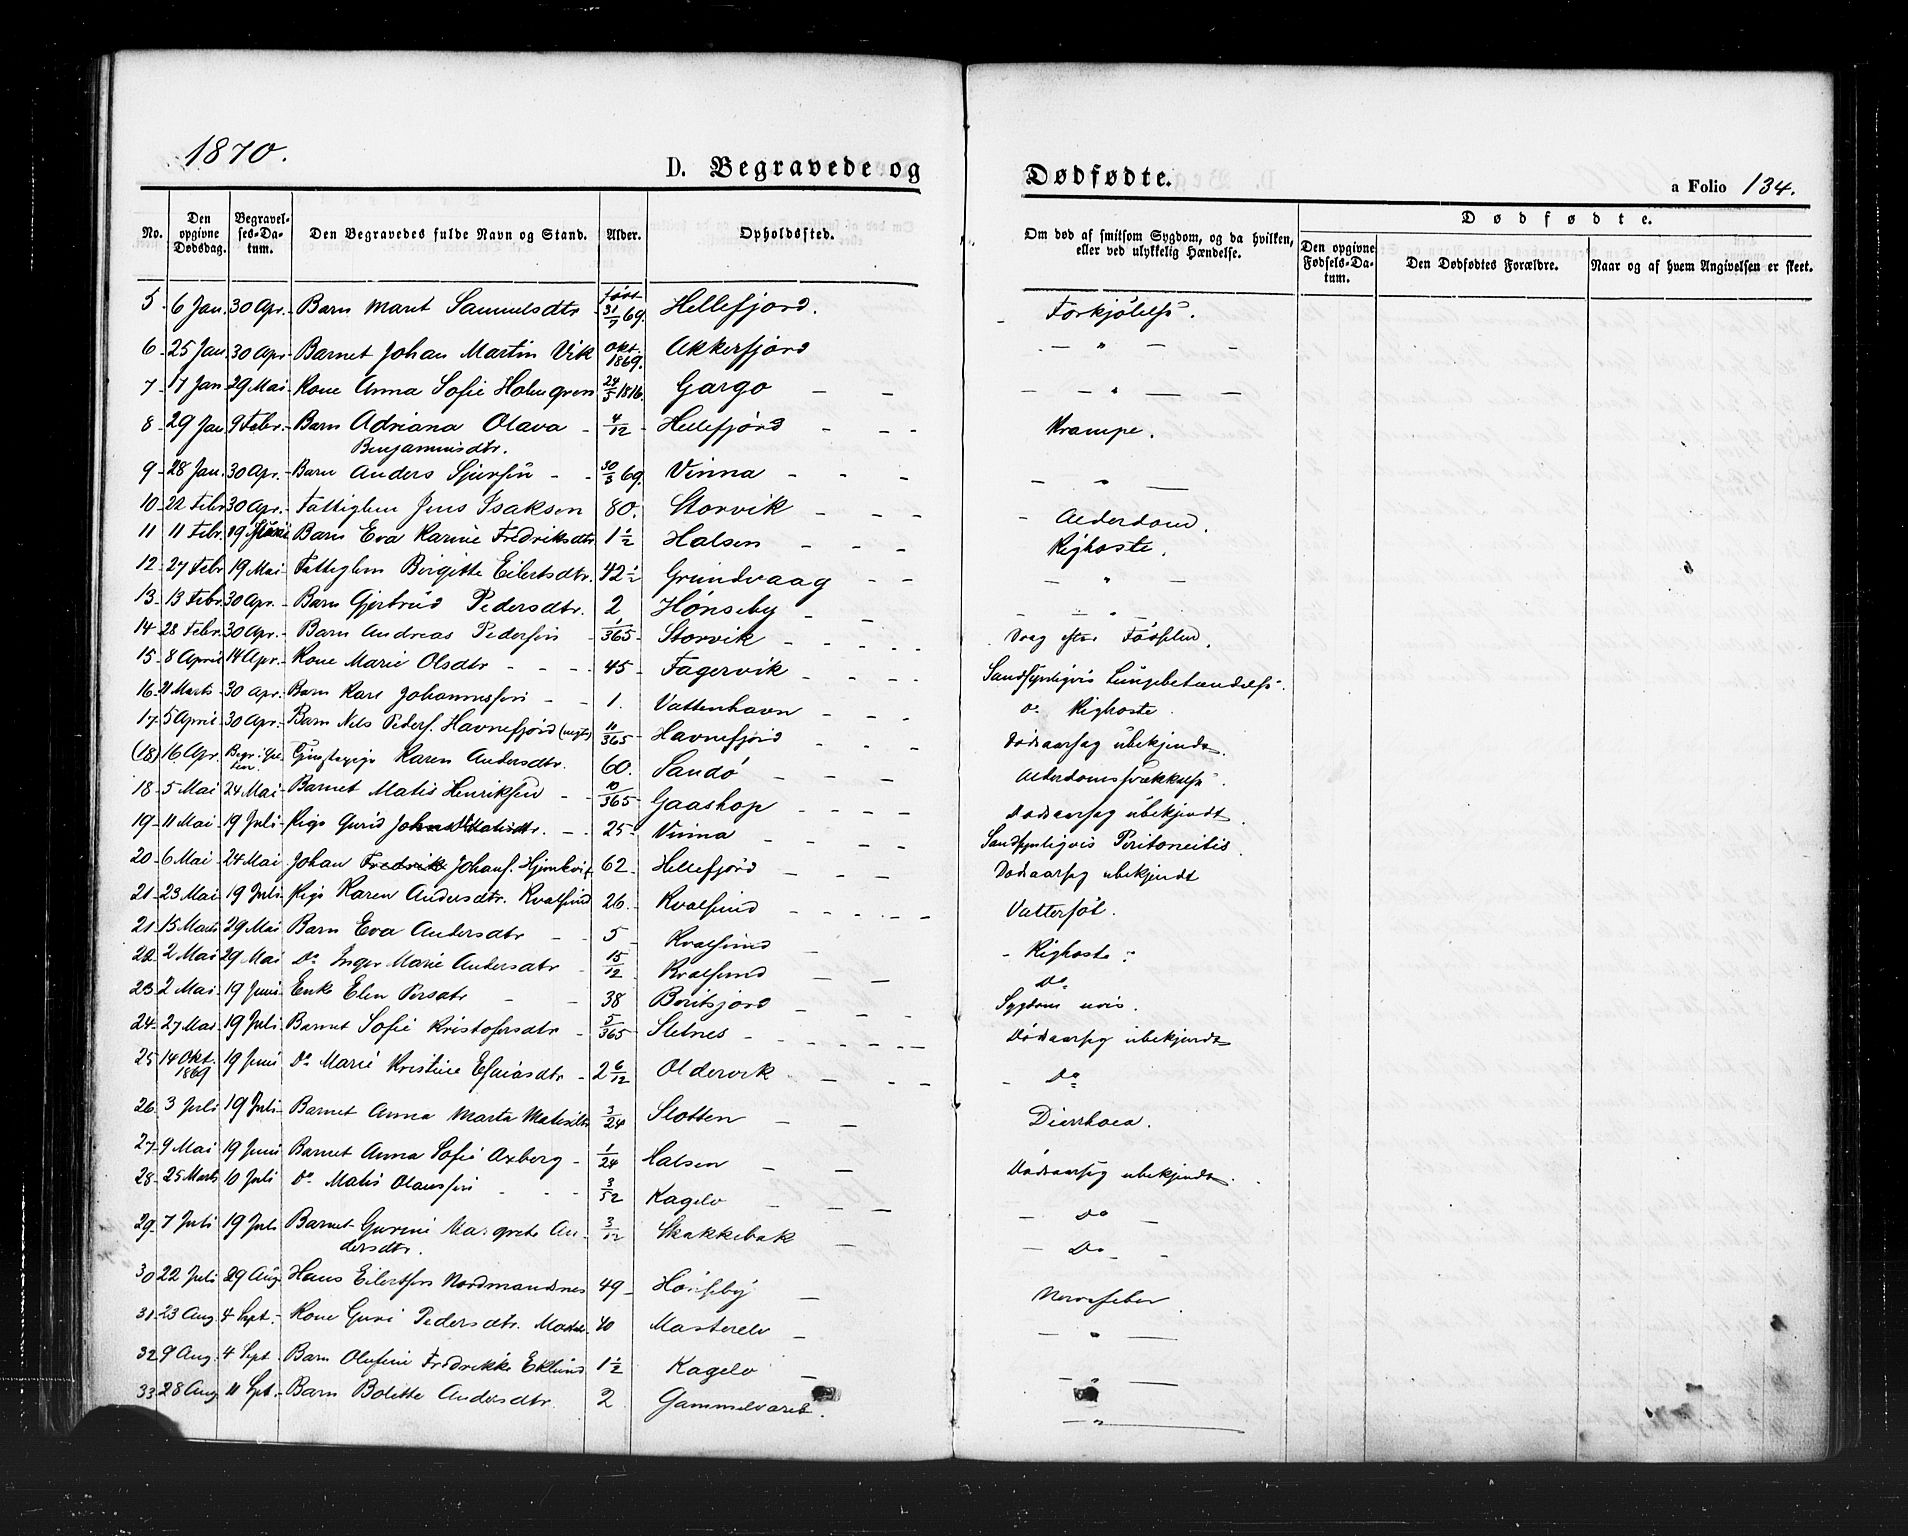 1870.
D. Begravede og Dødfødte.
a Folio 134.
No. Den opgivne Dødsdag. Begravelses-Datum. Den Begravedes fulde Navn og Stand. Alder. Opholdssted. Om død af smitsom Sygdom, og da hvilken, eller ved ulykkelig Hændelse. Dødfødte. Den opgivne Fødsels-Datum. Den Dødfødtes Forældre. Naar og af hvem Angivelsen er skeet.
5 6 Jan. 30 Apr. Barn Maret Samuelsdtr født 31/7 69. Hellefjord. Forkjølelse.
6 25 Jan 30 Apr Barnet Johan Martin Vik Okt. 1869. Akkerfjord — " — —
7 17 Jan 29 Mai Kone Anna Sofie Holmgren 24/5 1816. Gargo — — — " — —
8 29 Jan 9 Febr. Barn Adriana Olava Benjaminsdtr. 4/12 Hellefjord — — — Krampe.
9 28 Jan. 30 Apr. Barn Anders Sjursen 30/3 69. Vinna — — — — " —
10 22 Febr 30 Apr. Fattiglem Jens Isaksen 80. Storvik — — — Alderdom.
11 11 Febr. 29 Barn Eva Karine Fredriksdtr 1 1/2 Halsen — — — Kighoste.
12 27 Febr 19 Mai Fattiglem Birgitte Eilertsdtr. 42 1/2 Grundvaag — — — " —
13 13 Febr. 30 Apr. Barn Gjertrud Pedersdtr. 2 Hønseby — — — — "
14 28 Febr. 30 Apr. Barn Andreas Pedersen 1/365 Storvik — — — Svag efter Fødselen.
15 8 April 14 Apr. Kone Marie Olsdtr — — — 45 Fagervik — — — — Sandsynligvis Lungebetændelse.
16 21 Marts 30 Apr Barn Karl Johannessen — — 1. Vattenhavn — — — Do Kighoste.
17 5 April 30 Apr. Barn Nels Peders. Havnefjord 11/365 Havnefjord — — — Dødsaarsag ubekjendt.
(18) 16 Apr. Karen Andersdtr. 60. Sandø — — — Alderdomssvækkelse.
18 5 Mai 24 Mai Barnet Matis Henriksen — — 10/365 Gaashop — — — — Dødsaarsag ubekjendt.
19 11 Mai 19 Juli Pige Gurid Matisdtr. — — 25 Vinna — — — — Sandsynligvis Peritoneitis.
20 6 Mai 24 Mai Johan Fredrik Johans. 62 Hellefjord — — — Dødsaarsag ubekjendt
21 23 Mai 19 Juli Pige Karen Andersdtr. Kvalsund 26. Kvalsund — — — — — Vattersot.
21 15 Marts 29 Mai Barn Eva Andersdtr — — 5 Kvalsund — Kighoste.
22 2 Mai 29 Mai Do Inger Marie Andersdtr — 15/12 Kvalsund — — Do
23 2 Mai 19 Juni Enke Elen Persdtr — — 38 Beritsjord — — — Sygdom uvis.
24 27 Mai 19 Juli Barnet Sofie Kristofersdtr — 5/365 Sletnes — — — — — — Dødsaarsag ubekjendt
25 14 Okt. 1869 19 Juni Do Marie Kristine Esaiasdtr — 2 6/12 Oldervik — — — — Do
26 3 Juli 19 Juli Barnet Anna Marta Matisdtr 3/24 Slotten — — Diarrhoea.
27 9 Mai 19 Juni Barnet Anna Sofie Axberg 1/24 Halsen — — Dødsaarsag ubekjendt.
28 25 Marts 10 Juli Do Matis Olaussen — — — 3/52 Kagelv — — — — Do —
29 7 Juli 19 Juli Barnet Gurine Margrete Andersdtr. 3/12 Skakkebak — — Do —
30 22 Juli 29 Aug Hans Eilertsen Nordmandsnes 49 Hønseby — Nervefeber.
31 23 Aug 4 Sept. Kone Guri Pedersdtr. 40 Masterelv — — " —
32 9 Aug. 4 Sept Barn Olufine Fredrikke Eklund 1 1/2 Kagelv — — " —
33 28 Aug 11 Spt. Barn Bolette Andersdtr. 2 Gammelvaret. — " —